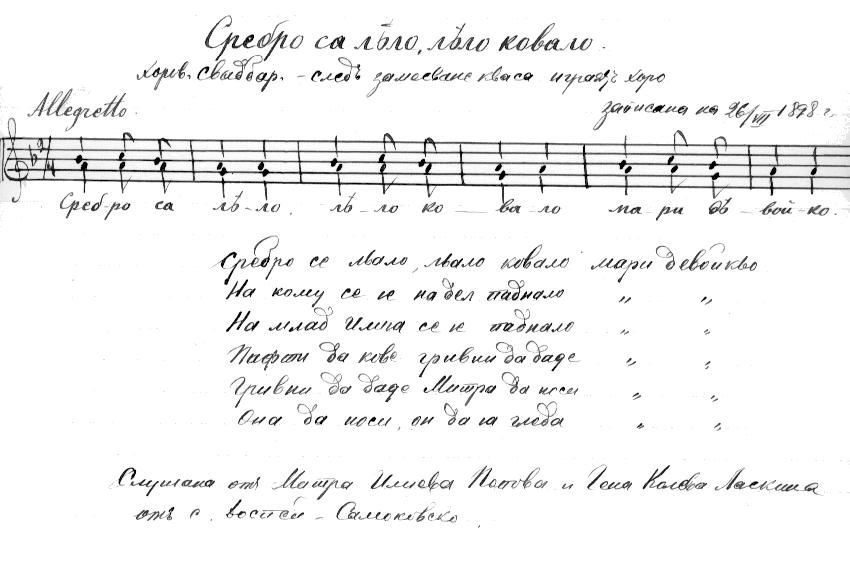 Сребро са лѣло, лѣло ковало.
Хоров. Сватбар. - следъ замесване кваса играятъ хоро
Allegretto
записана на 26/VII 1898 г.
2/4
Среб-ро са лѣ-ло, лѣ-ло ко — ва-ло ма-ри дѣ-вой-ко.
Сребро се лѣало, лѣало ковало мари девойкьо
На кому се е на дел паднало " "
На млад Илия се е паднало " "
Пафти да кове гривни да даде " "
Гривни да даде Митра да носи " "
Она да носи, он да ю гледа " "
Слушана отъ Митра Илиева Попова и Гена Колева
отъ с. - Самоковско.